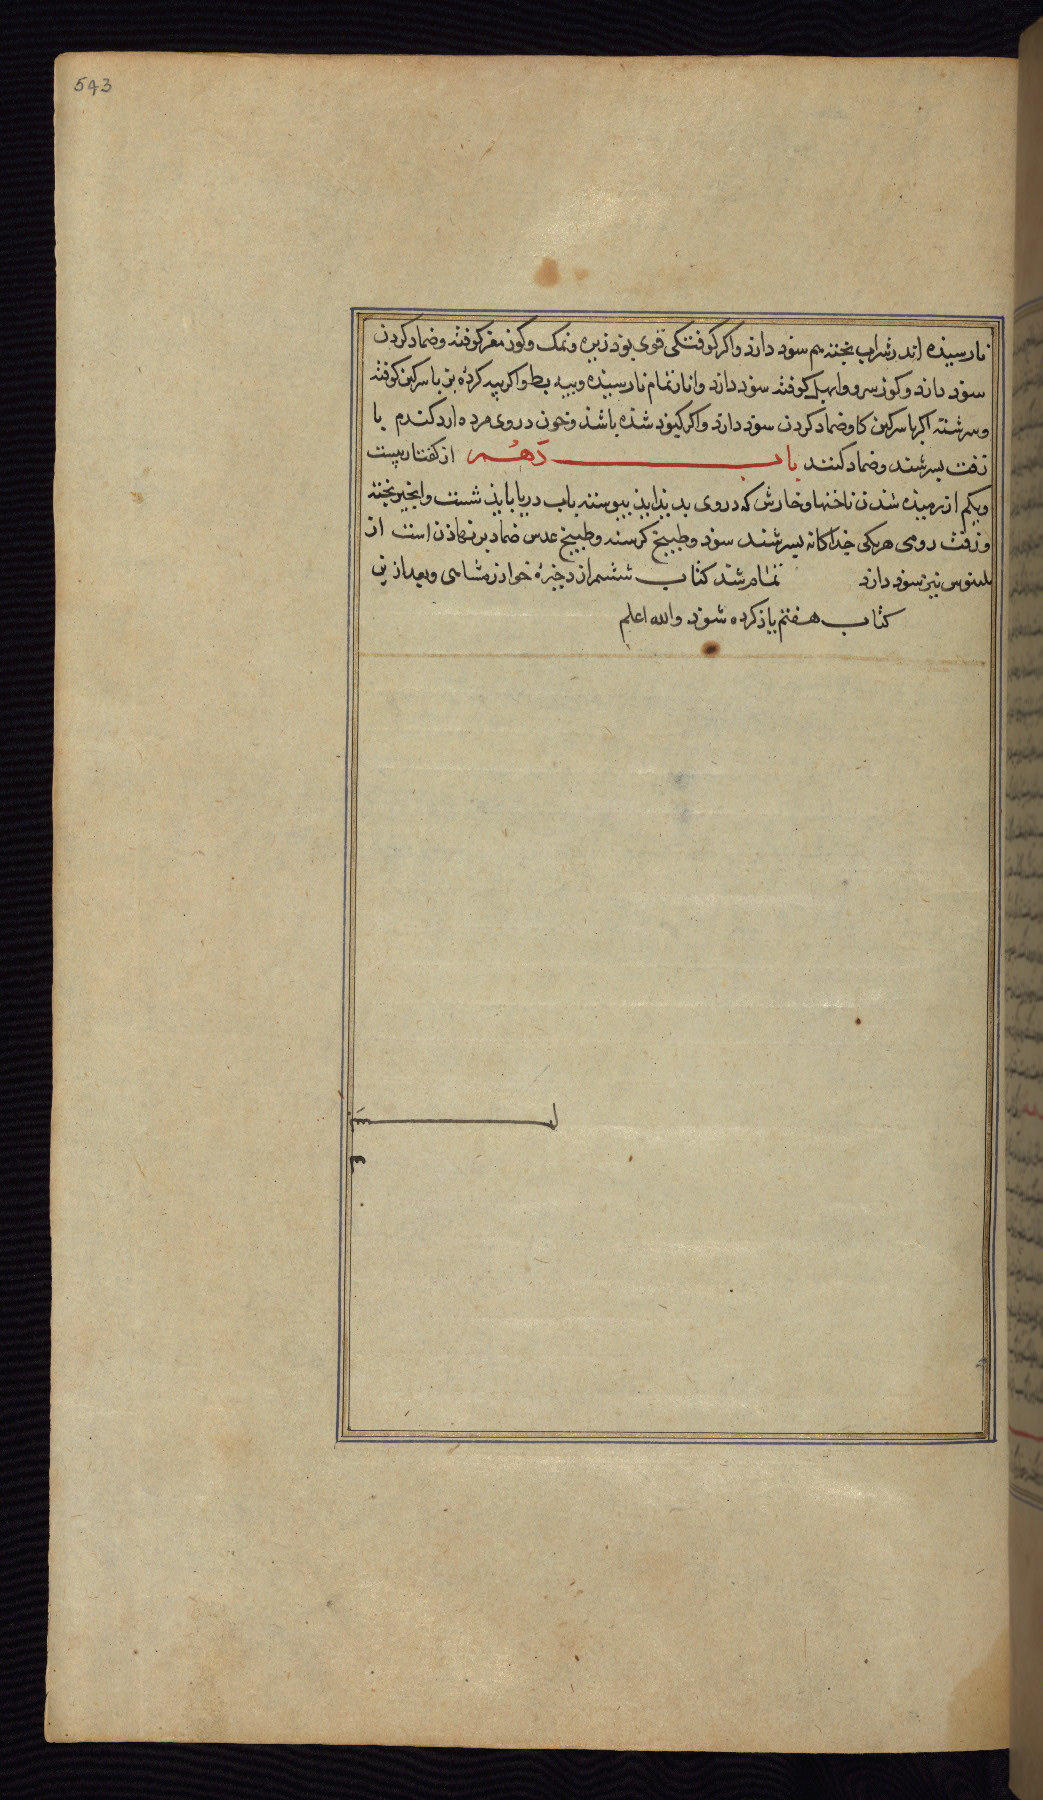 543
نارسیذه اندر شراب پخته هم سوذ دارذ واکر کوفتکی قوی بوذ زیره و نمک و کوز مغز کوفته وضماد کردن
سوذ دارذ و کوز سرو وابهل کوفته سوذ دارذ وانار تمام نارسیذه وپیه بط واکر پیه کرده بز با سرکین کوفته
وسرشته اکر با سرکین کاو ضماد کردن سوذ دارذ واکر کبوذ شذه باشذ وخون در وی مرده ارد کندم با
زفت بسرشند وضماد کنند باب دهم از کفتار بیست
ویکم از رمیذه شذن ناخنها وخارش که در وی بدیذ ایذ پیوسته باب دریا بایذ شست وانجیر پخته
وزفت رومی هریکی جذاکانه بسرشند سوذ وطبیخ کرسنه وطبیخ عدس ضماد برنهاذن است از
نیز سوذ دارذ تمام شذ کتاب ششم از ذخیرهٔ خوارزمشاهی وبعد ازین
کتاب هفتم یاذ کرده شوذ والله اعلم